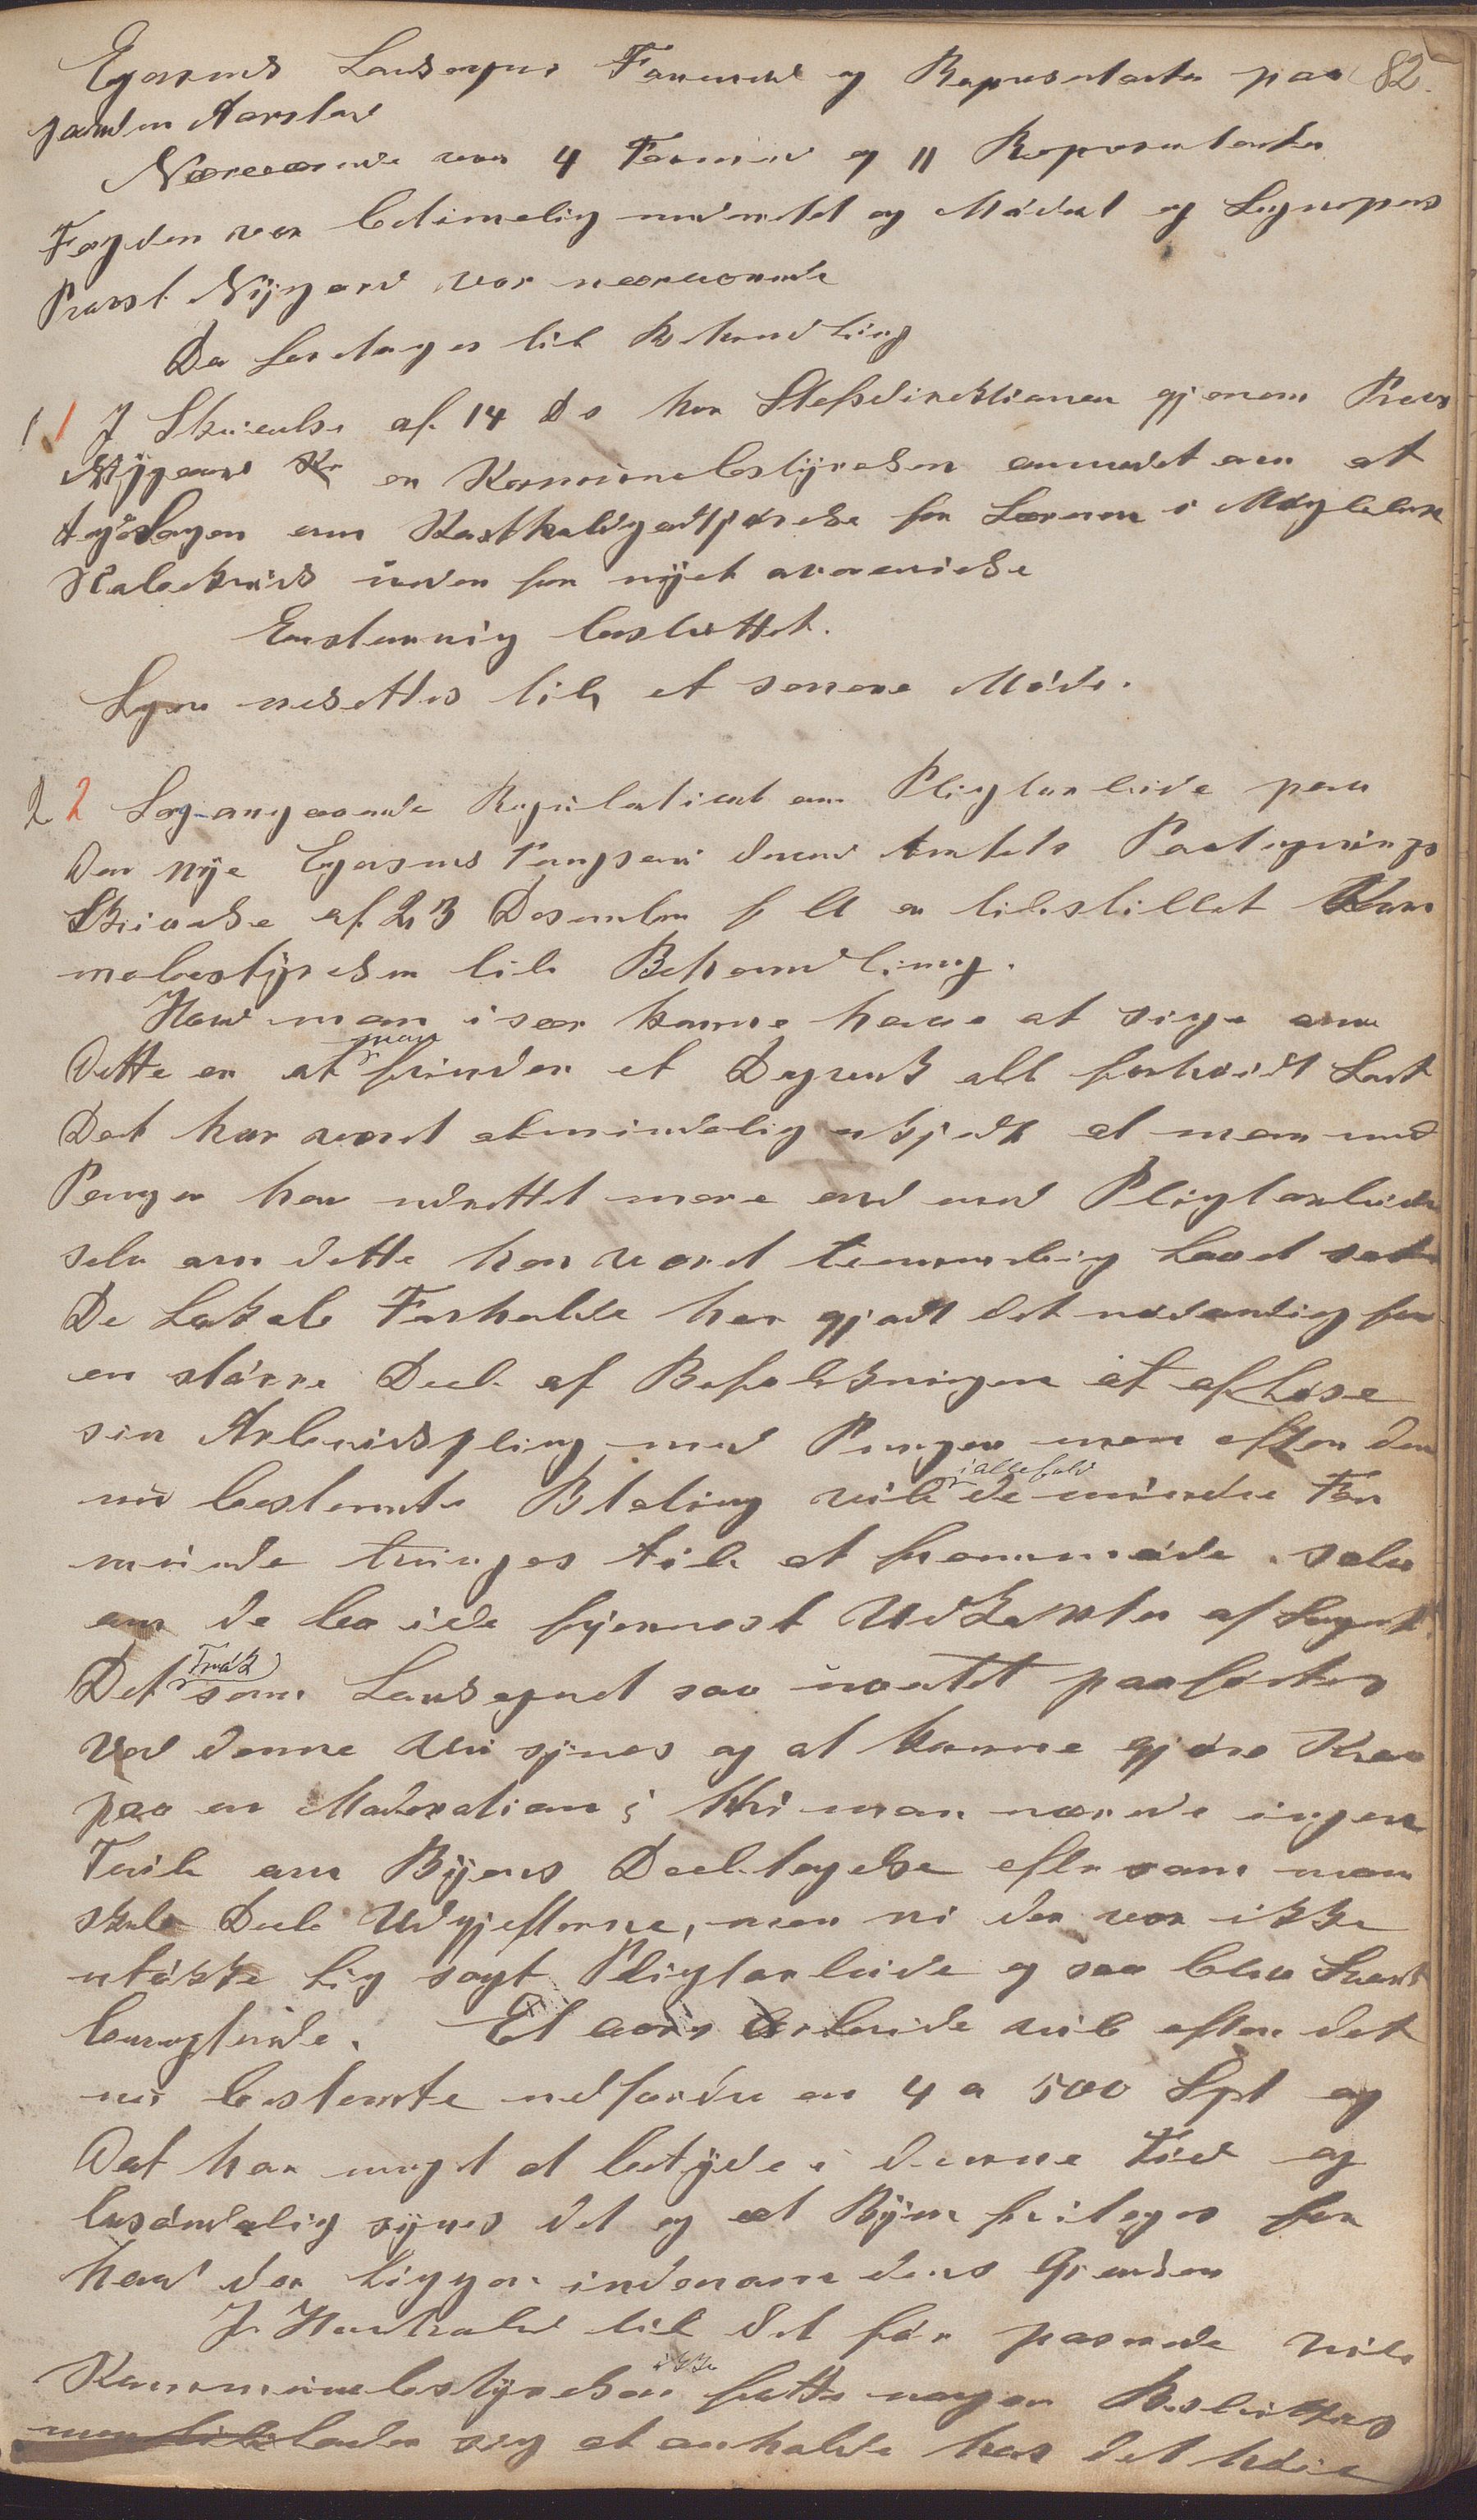 Egersunds Landsogns Formænd og Representanter paa 82.
gaarden Aarstad
Nærværende var 4 Formænd og 11 Representanter
Fogden var betimelig underrettet og Mödet og Sognepræst
Provst Nÿgaard var nærværende
Da foretages til Behandling
1 1 I Skrivelse af 14 Ds har Stiftsdirektionen gjenem Provst
Nÿgaard er Kommunebestÿrelsen anmodet om at
om Kostholdsgodtgjørelse for Læreren i
Skolekreds inden for nÿet
Enstemmig besluttet.
Sagen udsettes til et senere Möde.
2 2 Sag angaaende Regulativet om Pligtarbeide paa
Den nÿe Egersunds Amtets Paategnings
Skrivelse af 23 Desember f A er tilstillet Kom
nebestÿrelsen til Behandling.
Hvad man især kunne have at sige om
Dette er at man finder et Dagverk alt forhöit sat
Det har været almindelig at man med
Penger har udrettet mere end med Pligtarbeide
selv om dette har været temmelig Lavt sat
De Lokale Forholde har gjort det nødvendig for
en större Deel af Befolkningen at aflöse
sin Arbeidspligt med Penger men efter den
nu bestemte Betaling vil i allefald de mindre For
muende tvinges til at fremmöde selv
om de bo i de fjerneste Udkanter af Sognet.
Det Trük som Landsognet saa uventet paaförtes
ved denne Vei sÿnes og at kunne gjöre Krav
paa en Moderation; thi man nærede ingen
Tvil om Bÿens Deeltagelse eftersom man
skule Dele Udgjifterne, men ni der var ikke
Lig sagt Pligtarbeide og saa blev Svaret
benegtende. Et aars Arbeide vil efter det
nu bestemte udfordre en 4 a 500 Spd og
Det har meget at betÿde i denne Tid og
besönderlig sÿnes det og at Bÿen fritages for
hvad der Ligger indenom dens Grendser
I Henhold til det för passerede vil
Kommunebestÿrelsen ikke fatte nogen Beslutning
men lader sig at anholde hos det höie